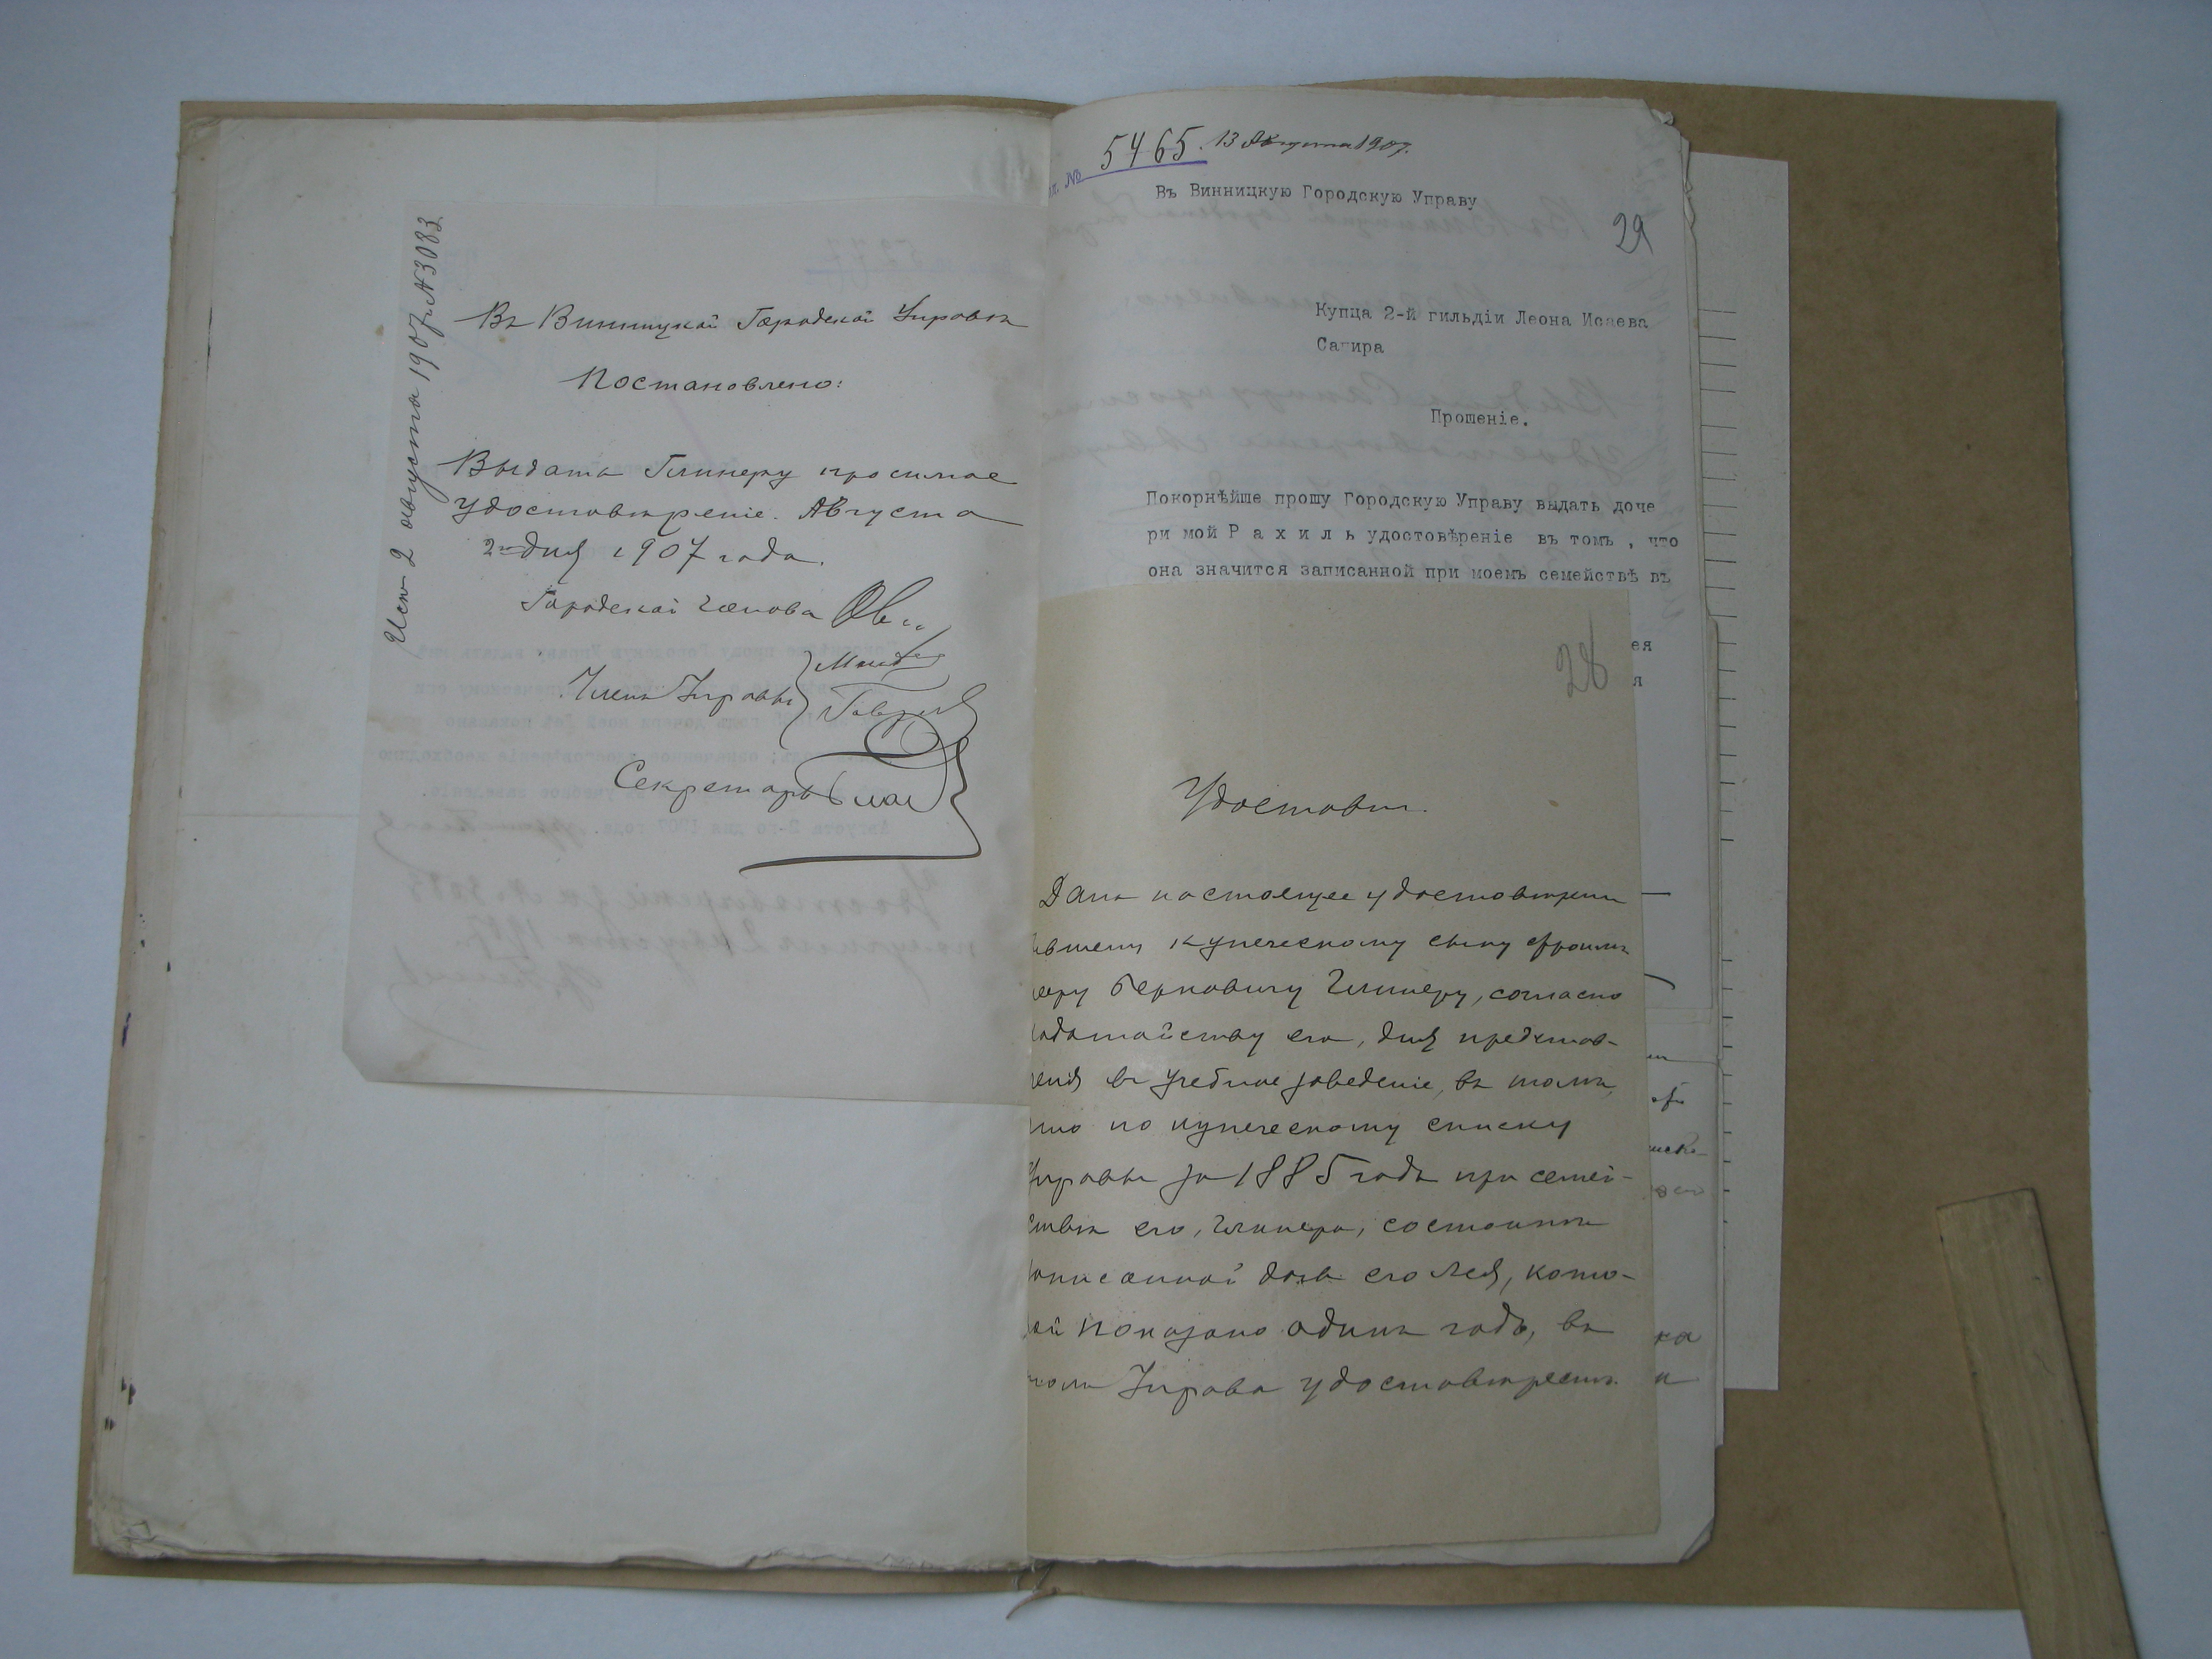 Исп. 2 августа 1907 г. № 3083
Въ Винницкой Городской Управѣ
Постановлено:
Выдать Глинеру просимое
удостовѣреніе. Августа
2 дня 1907 года.
Городской Голова
Члены Управы
Секретарь
№ 5465. 13 Августа 1907.
Въ Винницкую Городскую Управу
29
Купца 2-й гильдіи Леона Исаева
Сагира
Прошеніе.
Покорнѣйше прошу Городскую Управу выдать доче
ри мой Р а х и л ь удостовѣреніе въ томъ , что
она значится записанной при моемъ семействѣ въ
ея
я
28
Удостовѣр.
Дано настоящее удостовѣреніе
купеческому сыну Фроимъ
Берковичу Глинеру, согласно
ходатайству его, для представ-
ленія въ учебное заведеніе, въ томъ,
что по купеческому списку
Управы за 1885 годъ при семей-
ствѣ его, Глинера, состоитъ
записанной дочь его Лея, кото-
рой показано одинъ годъ, въ
чемъ Управа удостовѣряетъ.
ка
и